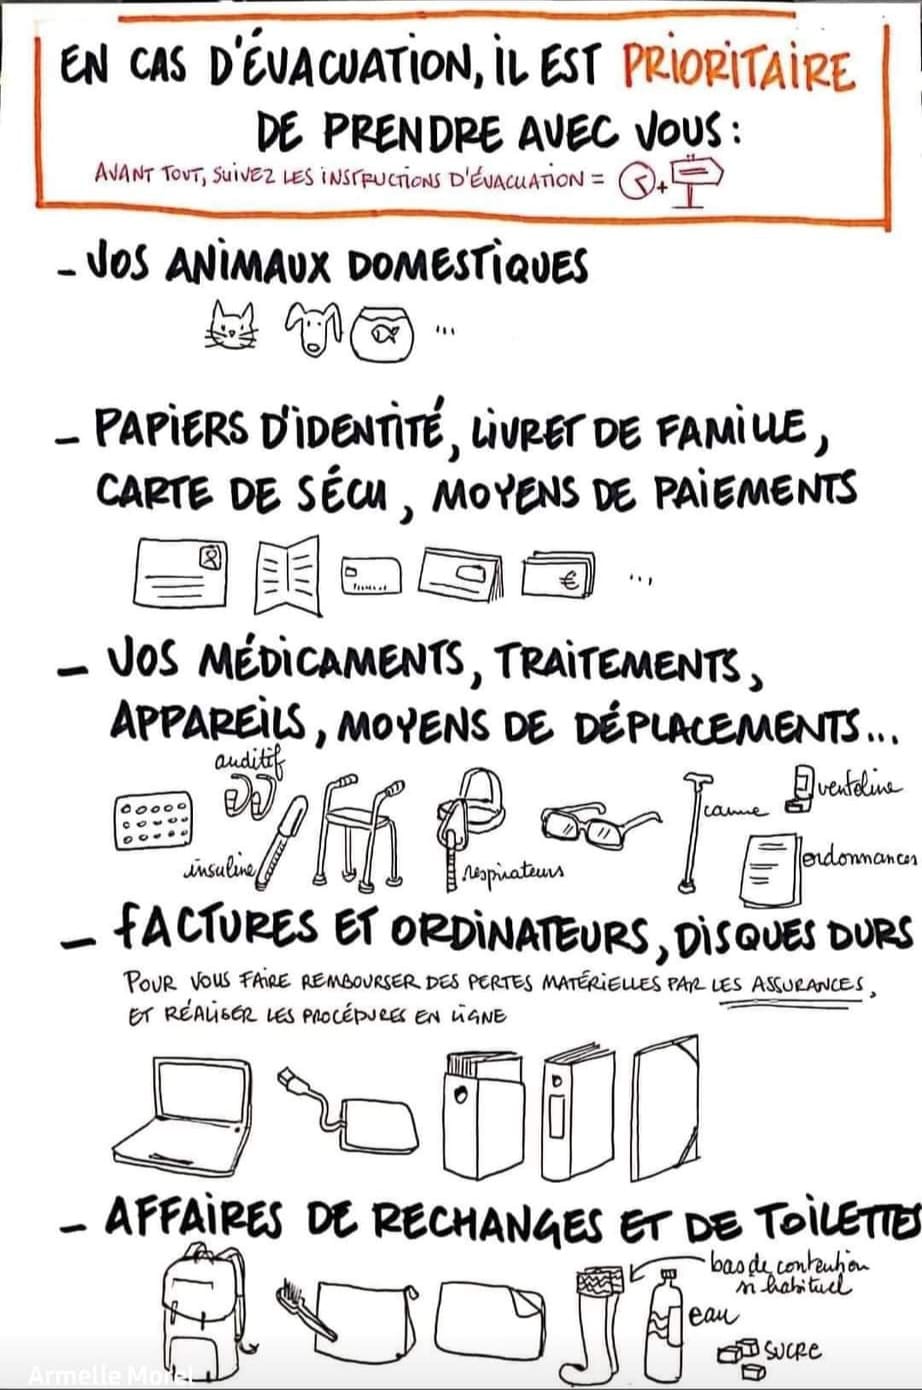 EN CAS D'ÉVACUATION, IL EST PRIORITAIRE
DE PRENDRE AVEC VOUS :
AVANT TOUT, SUIVEZ LES INSTRUCTIONS D'ÉVACUATION = +
- VOS ANIMAUX DOMESTIQUES
...
- PAPIERS D'IDENTITÉ, LIVRET DE FAMILLE,
CARTE DE SÉCU, MOYENS DE PAIEMENTS
€ ...
- VOS MÉDICAMENTS, TRAITEMENTS,
APPAREILS, MOYENS DE DÉPLACEMENTS...
auditif
ventoline
canne
ordonnances
insuline
respirateurs
- FACTURES ET ORDINATEURS, DISQUES DURS
POUR VOUS FAIRE REMBOURSER DES PERTES MATÉRIELLES PAR LES ASSURANCES,
ET RÉALISER LES PROCÉDURES EN LIGNE
- AFFAIRES DE RECHANGES ET DE TOILETTES
bas de contention
si habituel
eau
SUCRE
Armelle Morel